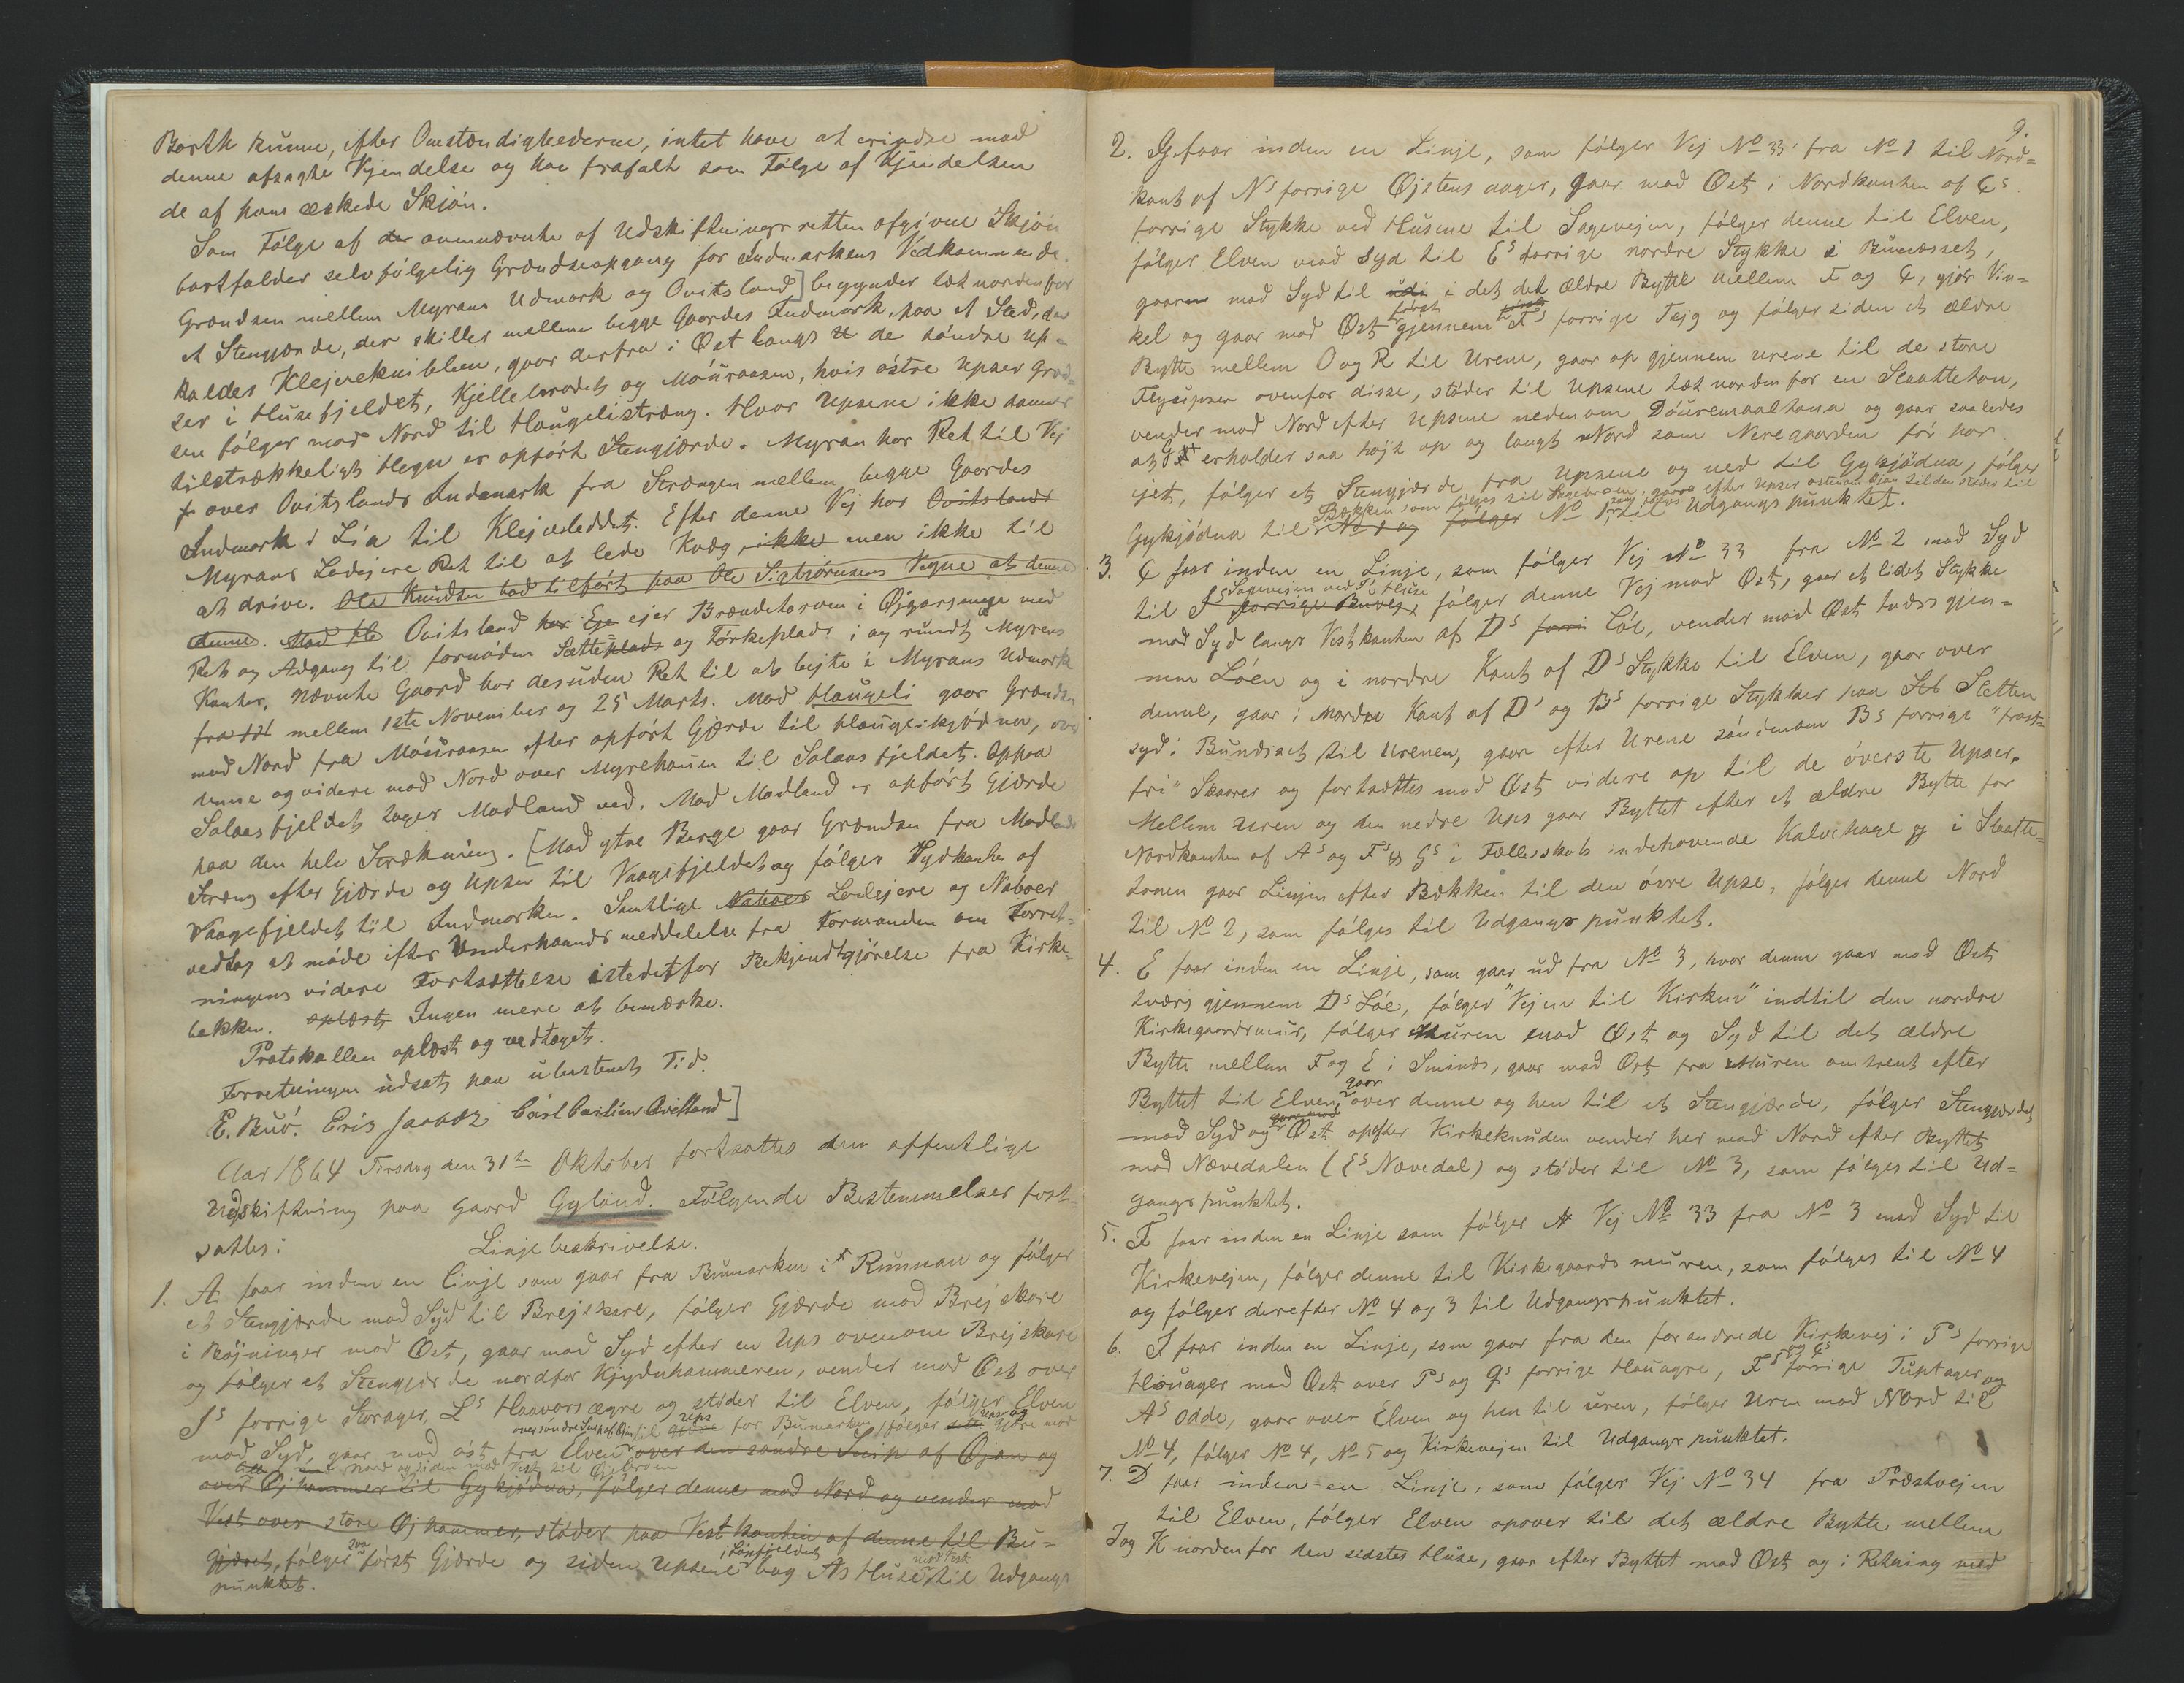 Barth kunne, efter Omstændighederne, intet have at erindre mod
denne afsagte Kjendelse og har frafalt som Følge af Kjendelsen
de af ham æskede Skjøn.
Som Følge af der ovennævnte af Udskiftningsretten afgivne Skjøn
bortfalder selvfølgelig Grændseopgang for Indmarkens Vedkommende.
Grændsen mellem Myrans Udmark og Ovitsland] begynder tæt nordenfor
et Stengjærde, der skiller mellem begge Gaardes Indmark paa et Sted, der
kaldes Klejvekniblen, gaar derfra i Øst langs U de søndre Up-
ser i Husefjeldet, Kjellebrodet og Móuraasen, hvis østre Upser Grænd-
sen følger mod Nord til Haugelistræng. Hvor Upserne ikke danner
tilstrækkeligt Hegn er opført Stengjærde. Myran har Ret til Vej
fr over Ovitslands Indmark fra Strængen mellem begge Gaardes
Indmark i Lia til Klejveleddet. Efter denne Vej har Ovitslands
Myrans Lodejere Ret til at lede Kvæg, ikke men ikke til
at drive. Ole Knudsen bad tilført paa Ole Sigbjørnsens Vegne at denne
denne. Mod Ho Ovitsland har Eje ejer Brændetorven i Øygarsmyr med
Ret og Adgang til fornøden Sætteplads og Tørkeplads i og rundt Myrens
Kanter. Nævnte Gaard har desuden Ret til at bejte i Myrans Udmark
fra 1ste mellem 1ste November og 25 Marts. Mod Haugeli gaar Grændsen
mod Nord fra Móuraasen efter opført Gjærde til Haugekjødna, over
denne og videre mod Nord over Myrehaien til Salaasfjeldet. Oppaa
Salaasfjeldet tager Modland ved. Mod Modland er opført Gjærde
paa den hele Strækning. [Mod ytre Berge gaar Grændsen fra Modlands
Stræng efter Gjærde og Upser til Vaagefjeldet og følger Sydkanten af
Vaagefjeldet til Indmarken. Samtlige Naboer Lodejere og Naboer
vedtog at møde efter Underhaandsmeddelelse fra Formanden om Forret-
ningens videre Fortsættelse istedetfor Bekjendtgjørelse fra Kirke-
bakken. oplæst Ingen mere at bemærke.
Protokollen oplæst og vedtaget.
Forretningen udsat paa ubestemt Tid.
E. Buó. Eris Jaabæz Carl Carlsen Ovitland]
Aar 1864 Tirsdag den 31te Oktober fortsattes den offentlige
Udskiftning paa Gaard Gyland. Følgende Bestemmelser fast-
sattes:
Linjebeskrivelse.
1. A faar inden en Linje som gaar fra Bumarken i Runnan og følger
et Stengjærde mod Syd til Brejskare, følger Gjærde mod Brejskare
i Bøjninger mod Øst, gaar mod Syd efter en Ups ovenom Brejskare
og følger et Stengjærde nordfor Kjydnhammeren, vender mod Øst over
Js forrige Storager, Ls Haavorsægre og støder til Elven, følger Elven
over søndre Snip af Øjan til Ups for Bumarken, følger Ups og Gjære mod
mod Syd, gaar mod øst fra Elven over den søndre Snip af Øjan og
Nord og siden mod Vest til
over Øjhammer til Gykjødna, følger denne mod Nord og vender mod
Vest over store Øjhammer, støder paa Vestkanten af denne til Bu-
gjæret, følger saa først Gjærde og siden Upsene i Lónfjeldet bag As Huse mod Vest til Udgangs
punktet.
9.
2. G faar inden en Linje, som følger Vej No 33 fra No 1 til Nord-
kant af Ns forrige Øjstens aager, gaar mod Øst i Nordkanten af Cs
forrige Stykke ved Husene til Sagevejen, følger denne til Elven,
følger Elven mod Syd til Es forrige nordre Stykke i Bunæsset,
gaar mod Syd til idi i det det ældre Bytte mellem F og C, gjør Vin-
kel og gaar mod Øst først gjennem Fs forrige Tejg og følger siden et ældre
Bytte mellem O og R til Urene, gaar op gjennem Urene til de store
Flyupser ovenfor disse, støder til Upsene tæt norden for en Slaatteton,
vender mod Nord efter Upsene nedenom Dóuremaaltona og gaar saaledes
at G erholder saa højt op og langt Nord som Neregaarden før har
ejet, følger et Stengjærde fra Upsene og ned til Gykjødna, følger
Bækken som følges til Sagebroen, gaar efter Upser ostenom Øjan til den støder til
Gykjødna til No 1 og følger No 1, som følges til Udgangspunktet.
3. C faar inden en Linje, som følger Vej No 33 fra No 2 mod Syd
til Sagevejen ved Fs Huse forrige Buvej, følger denne Vej mod Øst, gaar et lidet Stykke
mod Syd langs Vestkanten af Ds forri Lóe, vender mod Øst tværs gjen-
nem Lóen og i nordre Kant af Ds Stykke til Elven, gaar over
denne, gaar i nordre Kant af Ds og Bs forrige Stykker paa Sl Sletten
syd i Bunæset til Urenen, gaar efter Urene søndenom Bs forrige "frost-
fri" Skaarer og fortsættes mod Øst videre op til de øverste Upser.
Mellem Uren og den nedre Ups gaar Byttet efter et ældre Bytte for
Nordkanten af As og Fs og Gs i Fællesskab indehavende Kalvehage og i Slaatte-
tonen gaar Linjen efter Bækken til den øvre Upse, følger denne Nord
til No 2, som følges til Udgangspunktet.
4. E faar inden en Linje, som gaar ud fra No 3, hvor denne gaar mod Øst
tværs gjennem Ds Lóe, følger "Vejen til Kirken" indtil den nordre
Kirkegaardsmur, følger Muren mod Øst og Syd til det ældre
Bytte mellem F og E i Sninæs, gaar mod Øst fra Muren omtrent efter
Byttet til Elven, gaar over denne og hen til et Stengjærde, følger Stengjærdet
mod Syd og Øst opefter Kirkeknuden vender her mod Nord efter Byttet
mod Nævedalen (Es Nævedal) og støder til No 3, som følges til Ud-
gangspunktet.
5. F faar inden en Linje som følger A Vej No 33 fra No 3 mod Syd til
Kirkevejen, følger denne til Kirkegaardsmuren, som følges til No 4
og følger derefter No 4 og 3 til Udgangspunktet.
6. I faar inden en Linje, som gaar fra den forandrede Kirkevej i Ps forrige
Houager mod Øst over Ps og Gs forrige Houagre, Fs og Cs forrige Tuptager og
As Odde, gaar over Elven og hen til Uren, følger Uren mod Nord til
No 4, følger No 4, No 5 og Kirkevejen til Udgangspunktet.
7. D faar inden en Linje, som følger Vej No 34 fra Præstvejen
til Elven, følger Elven opover til det ældre Bytte mellem
I og K norden for den sidstes Huse, gaar efter Byttet mod Øst og i Retning med